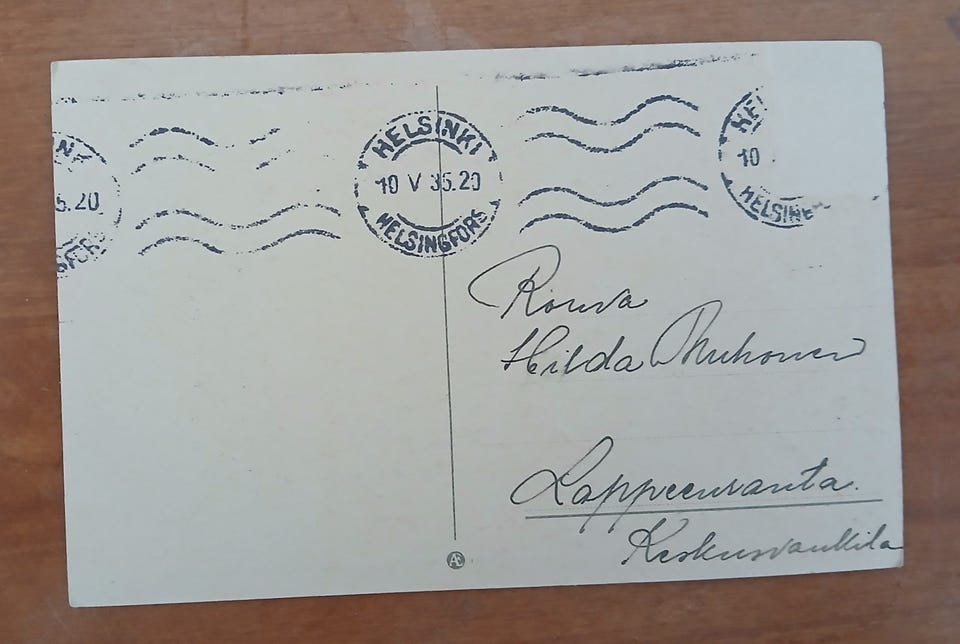 NKI
5.20
GFORS
HELSINKI
10 V 35.20
HELSINGFORS
HEL
10
HELSING
Rouva
Hilda Muhonen
Lappeenranta.
Keskusvankila
Æ